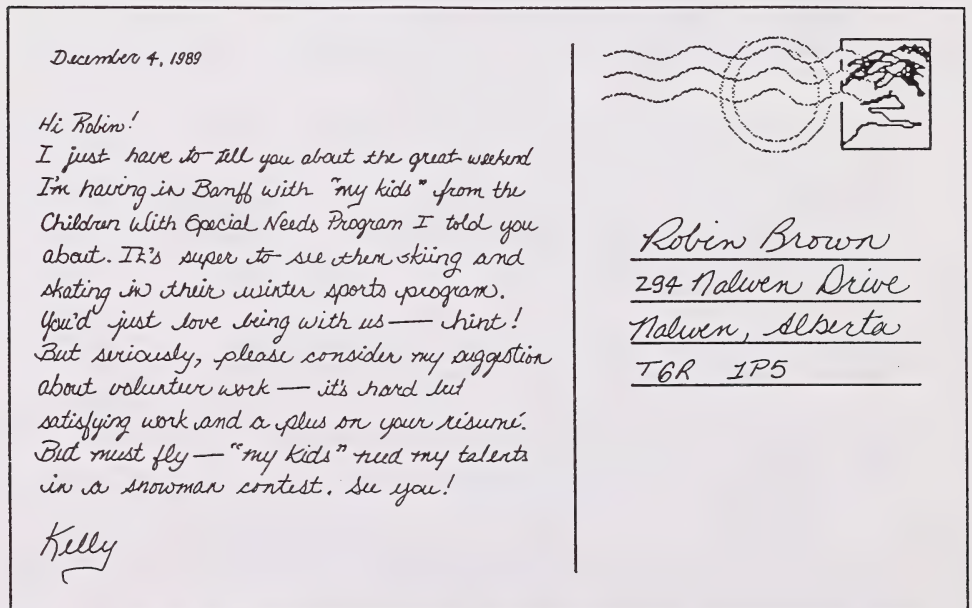 December 4, 1989
Hi Robin!
I just have to tell you about the great weekend
I'm having in Banff with "my kids" from the
Children With Special Needs Program I told you
about. It's super to see them skiing and
skating in their winter sports program.
You'd just love being with us — hint!
But seriously, please consider my suggestion
about volunteer work — it's hard but
satisfying work and a plus on your résumé.
But must fly — "my kids" need my talents
in a snowman contest. See you!
Kelly
Robin Brown
294 Nalwen Drive
Nalwen, Alberta
T6R 1P5